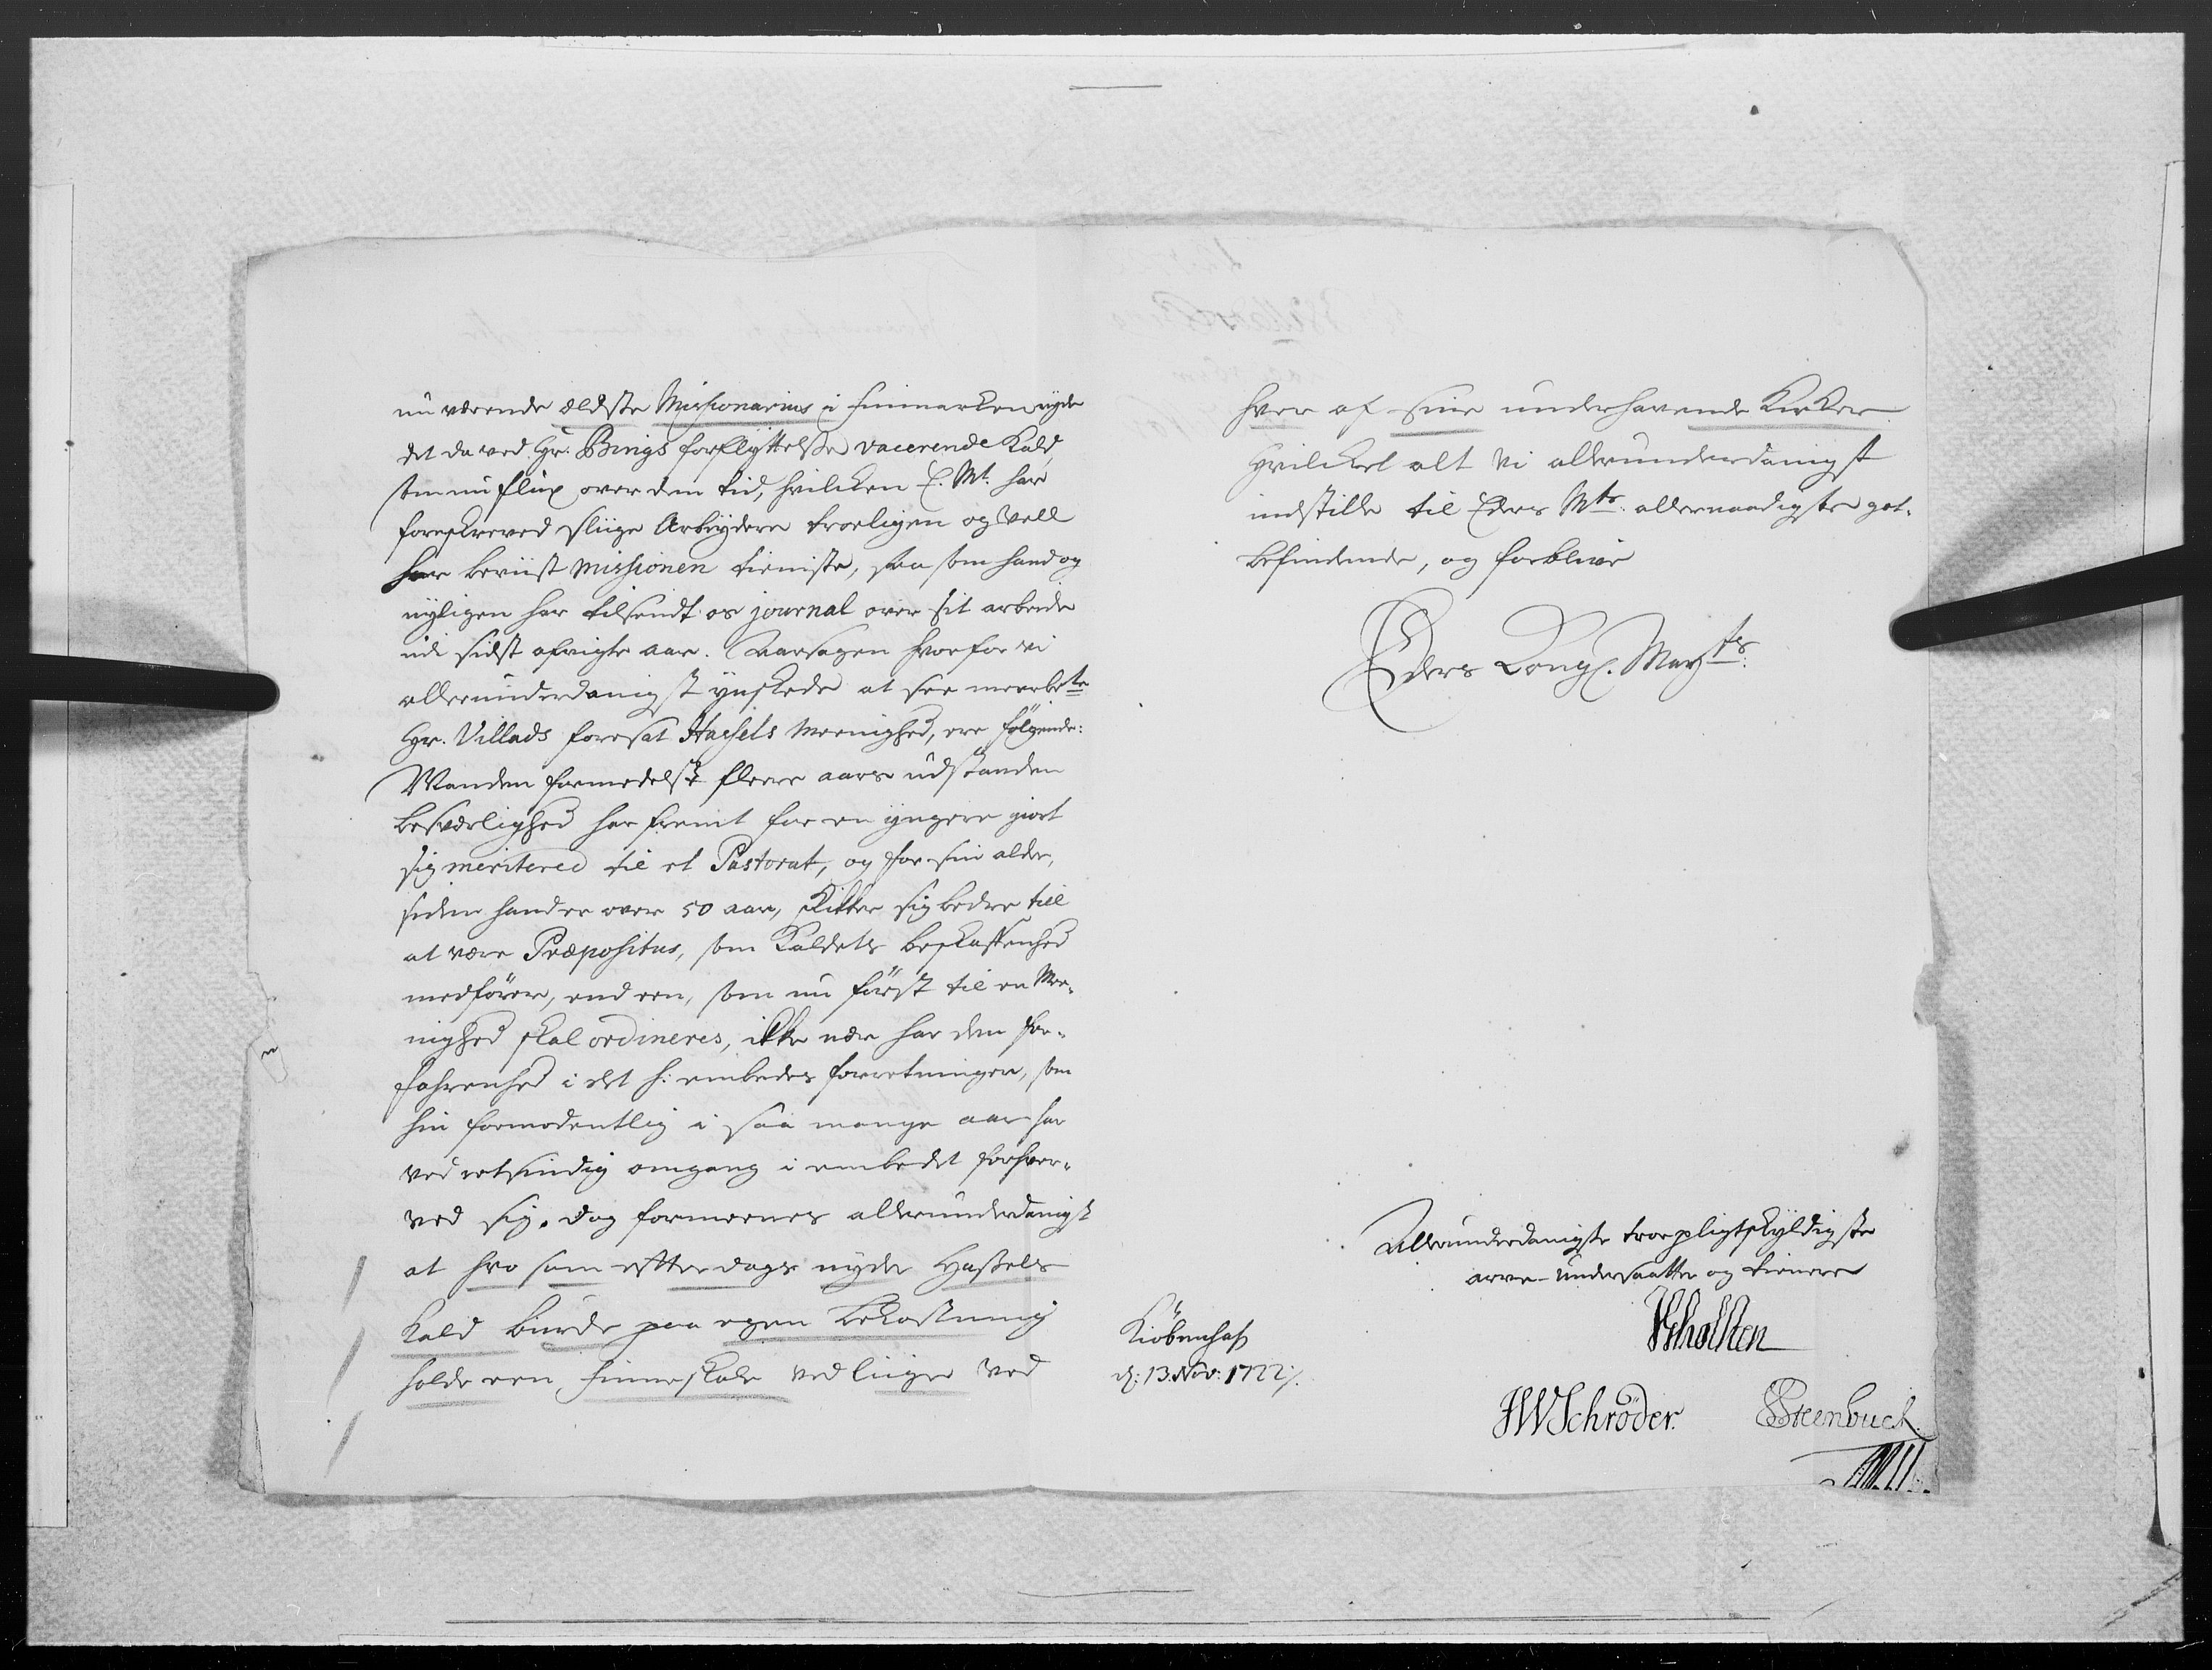 nu værende ældste Missionarius i finmarken nyde
det da ved Hr: Bings forflyttelse vacerende Kald,
som nu flux over den tid, hvilcken E. Mt. har
foreskreved slige Arbeydere troeligen og vell
har beviist missionen tieniste, saa som hand og
nyligen har tilsendt os journal over sit arbeide
udi sidst afvigte aar. Aarsagen hvorfor vi
allerunderdanigst ynskede at see meerbete
Hr. Villads foresat Hassels Meenighed, ere følgende:
Manden formedelst fleere aars udstanden
besværlighed har fremt for en yngere giort
sig meritered til et Pastorat, og for sin alder,
siden hand er over 50 aar, skikker sig bedre till
at være Præpositus, som Kaldets beskaffenhed
medfører, end een, som nu først til en Mee-
nighed skal ordineres, ikke nær har den for-
fahrenhed i det h: embedes forretninger, som
hin formodentlig i saa mange aar har
ved retsindig omgang i embedet forhver-
ved sig. Dog formeenes allerunderdanigst
at hvo som effterdags nyder Hassels
Kald burde paa egen bekostning
holde een finneskole ved lige ved
hver af sine underhavende Kircker.
Hvilcket alt vi allerunderdanigst
indstille til Eders Mts. allernaadigste got-
befindende, og forblive
Eders Kongl. Mayts.
Allerunderdanigste troepligtskyldigste
arve-undersaatter og tienere
Kiøbenhafn
d: 13. Nov: 1722
JGholsten
JWSchrøder. Steenbuch.